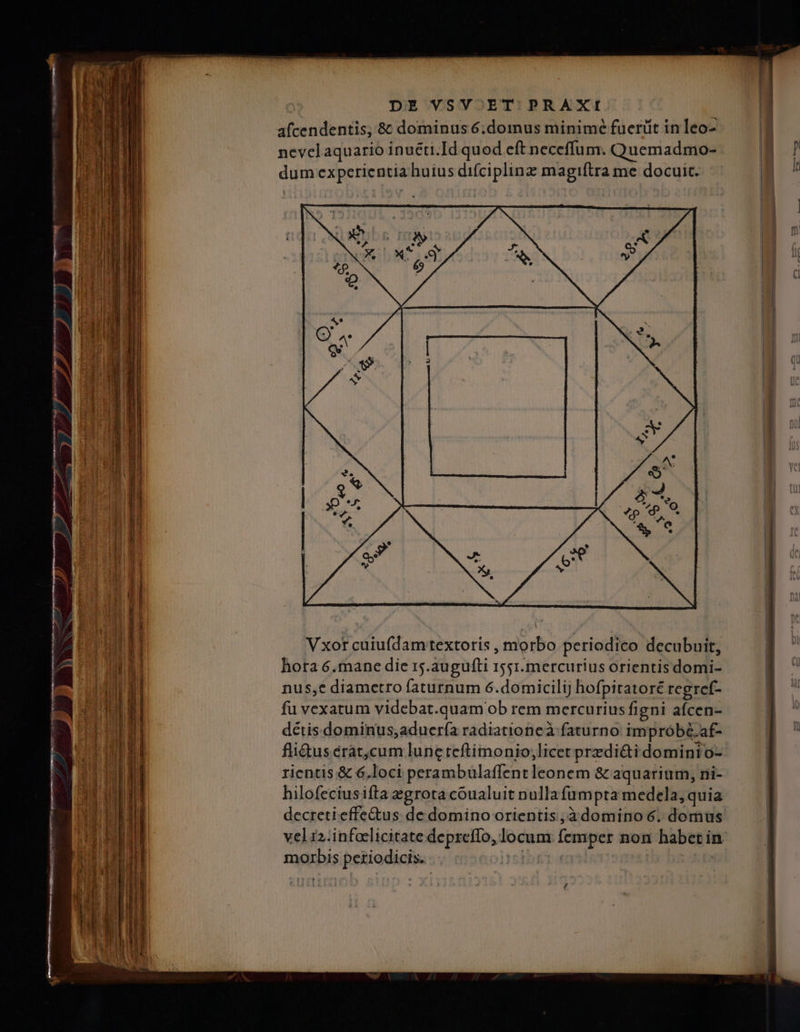 DE VSV ET PRAXI
aſcendentis, & dominus 6.domus minimè fuerūt in leo-
ne vel aquario inuēti.Id quod eſt neceſſum. Quemadmo-
dum experientia huius diſciplinæ magiſtra me docuit.
Vxor cuiuſdam textoris, morbo periodico decubuit,
hora 6.mane die 15.auguſti 1551.mercurius orientis domi-
nus,e diametro ſaturnum 6.domicilij hoſpitatorē regreſ-
ſu vexatum videbat.quam ob rem mercurius ſigni aſcen-
dētis dominus,aduerſa radiatione à ſaturno improbè.af-
flictus erat,cum lunę teſtimonio,licet prædicti domini o-
rientis & 6.loci perambulaſſent leonem & aquarium, ni-
hiloſecius iſta ægrota cōualuit nulla ſumpta medela, quia
decreti effectus de domino orientis, à domino 6. domus
vel 12.infœlicitate depreſſo, locum ſemper non habet in
morbis periodicis.